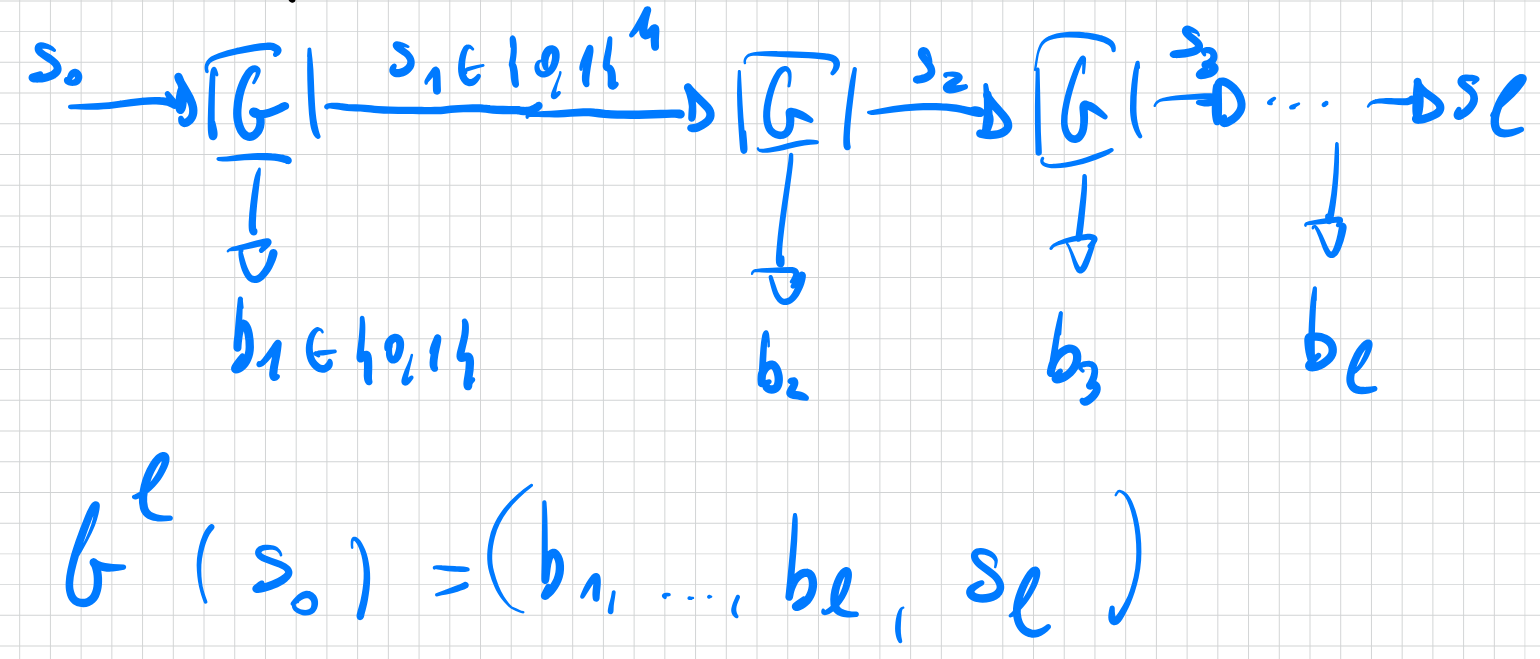 s₀ → G s₁ ∈ {0,1}ⁿ → G s₂ → G s₃ → ... → sℓ
b₁ ∈ {0,1} b₂ b₃ bℓ
Gˡ(s₀) = (b₁, ..., bℓ, sℓ)